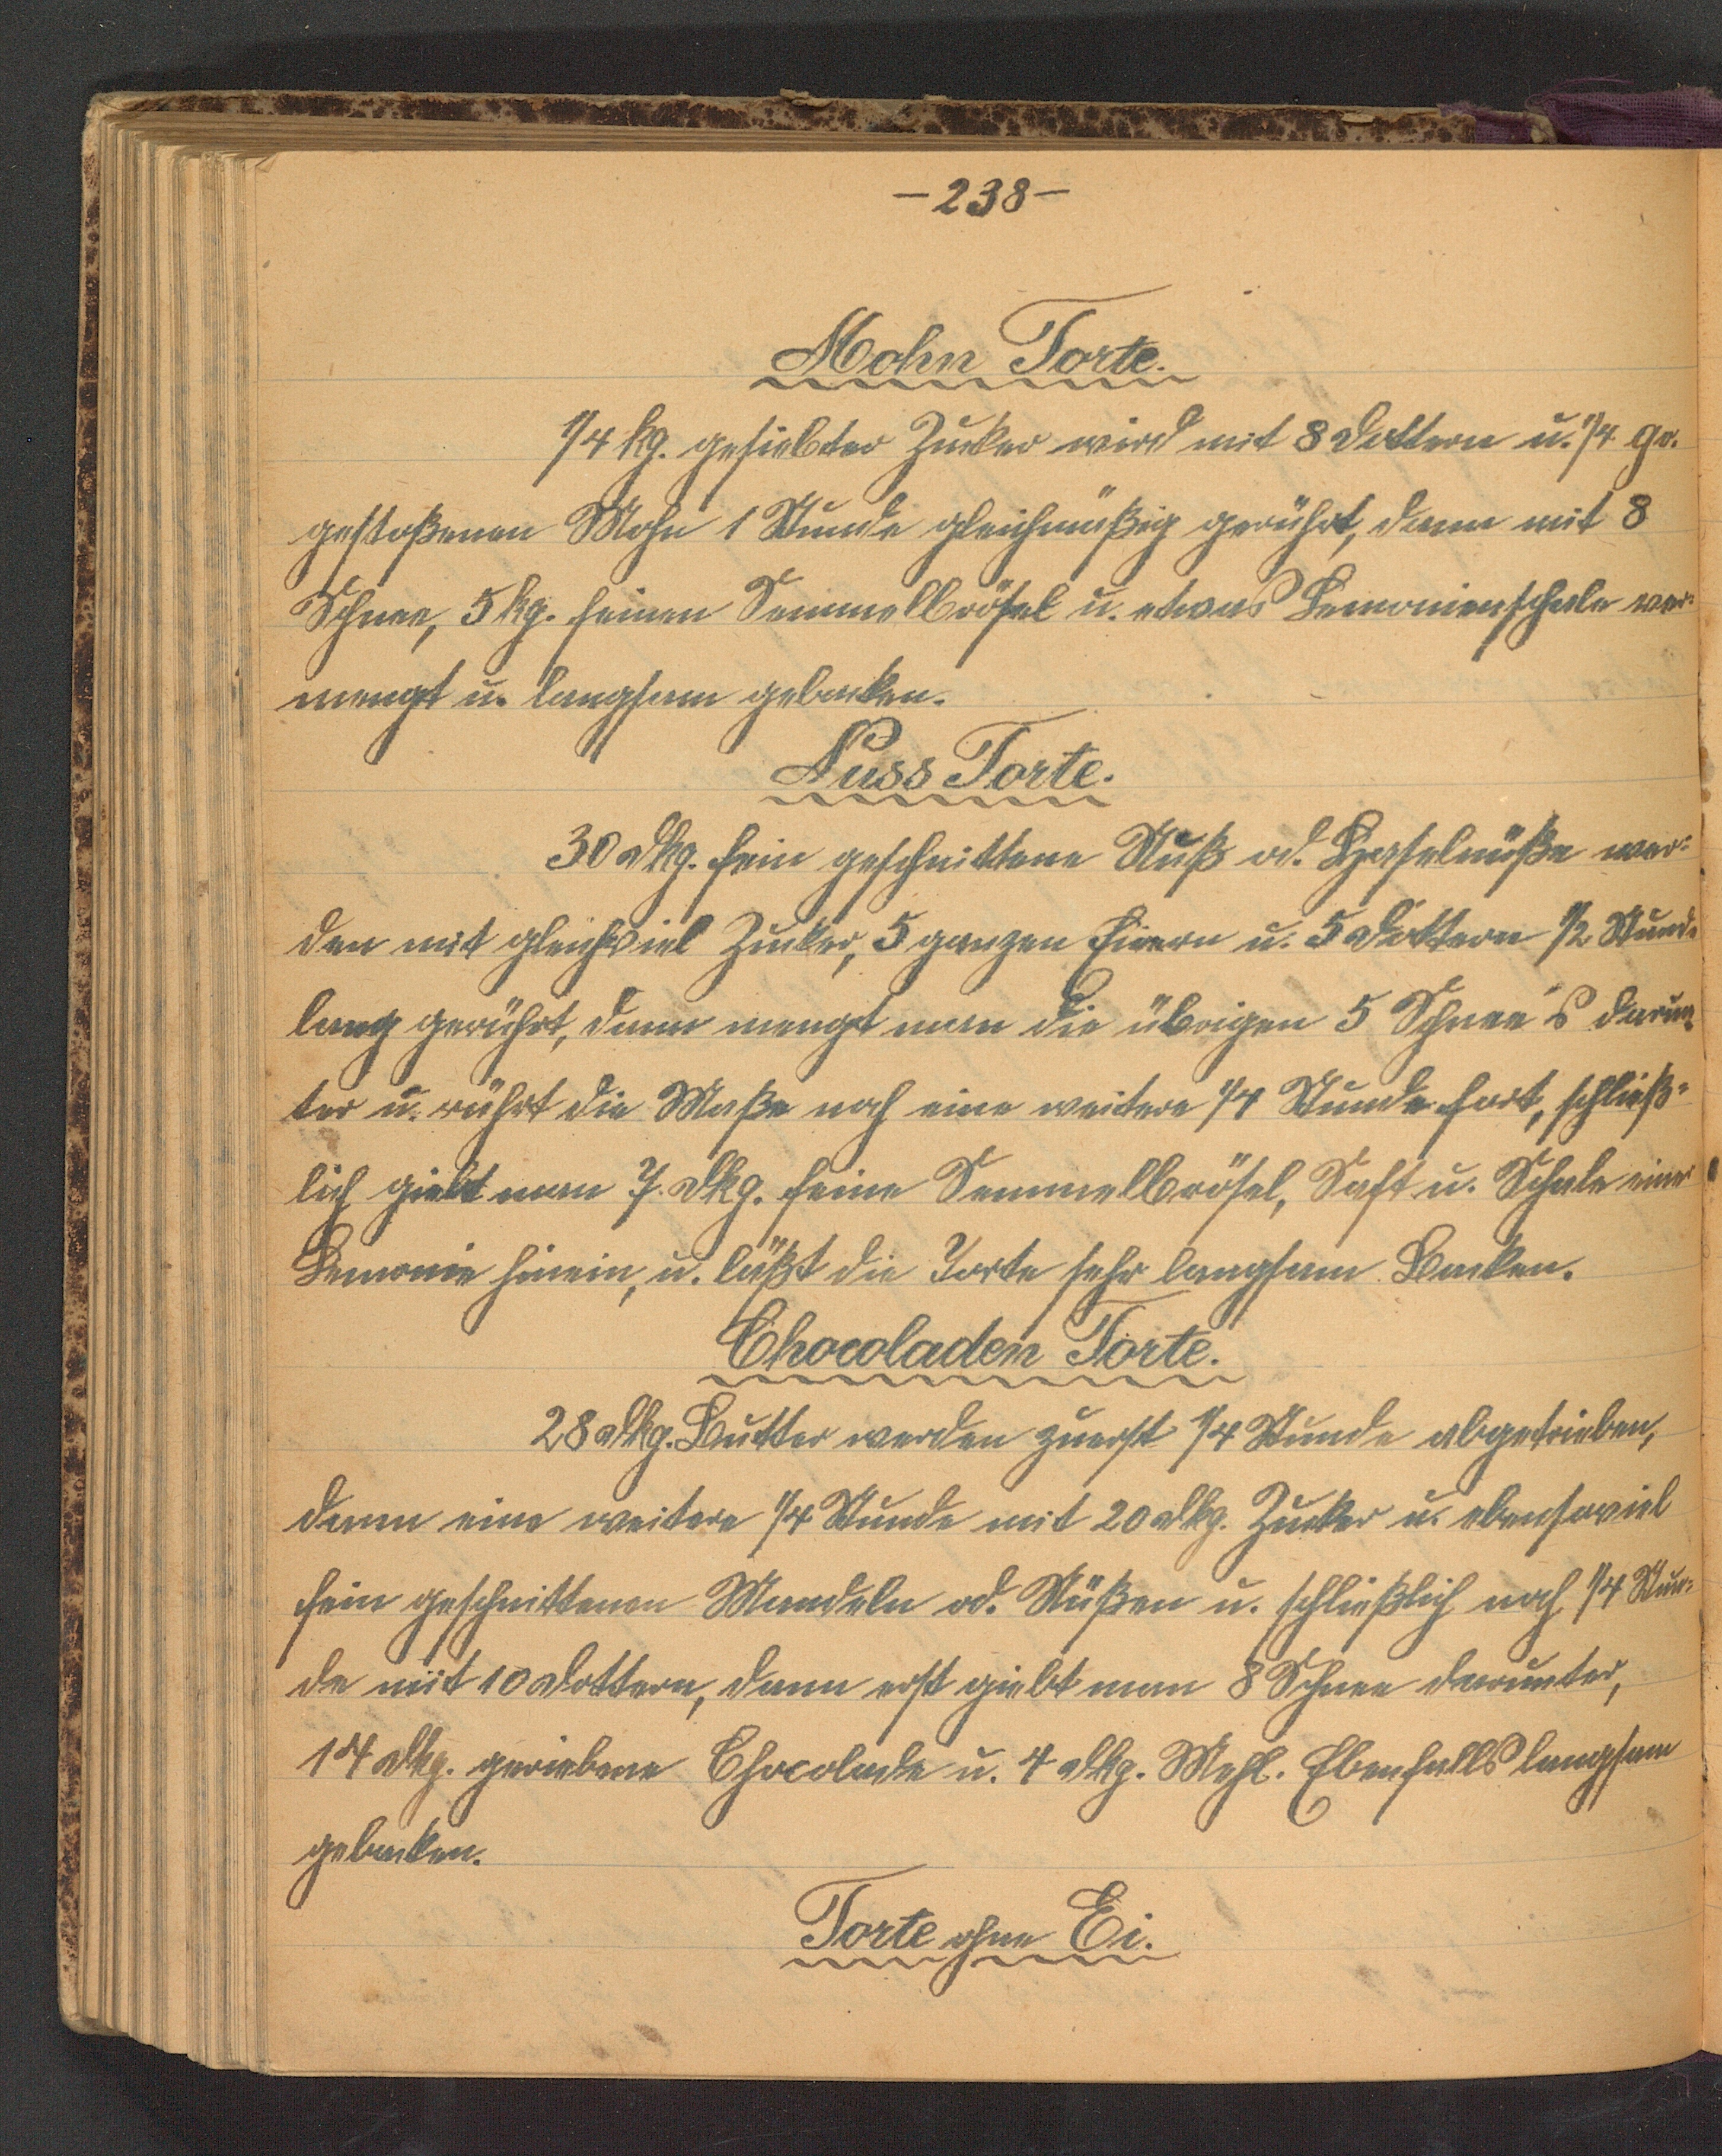 - 238 -
Mohn Torte.
1/4 kg. gesiebter Zucker wird mit 8 Dottern u. 1/4 gr.
gestoßenen Mohn 1 Stunde gleichmäßig gerührt, dann mit 8
Schnee, 5 kg. feinen Semmelbrösel u. etwas Lemonienschale ver=
mengt u. langsam gebacken.
Nuss Torte.
30 dkg. fein geschnittene Nuß od. Haselnüße wer=
den mit gleichviel Zucker, 5 ganzen Eiern u. 5 Dottern 1/2 Stunde
lang gerührt, dann mengt man die übrigen 5 Schnee's darun
ter u. rührt die Maße noch eine weitere 1/4 Stunde fort, schließ=
lich giebt man 7 dkg. feine Semmelbrösel, Saft u. Schale einer
Lemonie hinein, u. läßt die Torte sehr langsam Backen.
Chocoladen Torte.
28 dkg. Butter werden zuerst 1/4 Stunde abgetrieben,
dann eine weitere 1/4 Stunde mit 20 dkg. Zucker u. ebensoviel
fein geschnittenen Mandeln od. Nüßen u. schließlich noch 1/4 Stun=
de mit 10 Dottern, dann erst giebt man 8 Schnee darunter,
14 dkg. geriebene Chocolade u. 4 dkg. Mehl. Ebenfalls langsam
gebacken.
Torte ohne Ei.